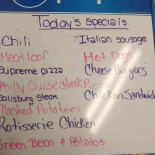 Today's specials
Chili
Italian sausage
Meatloaf
Hot Dogs
Supreme pizza
Cheese Burgers
Philly Cheese Steak
Pizza
Salisbury Steak
Chicken Sandwich
Mashed Potatoes
Rotisserie Chicken
Green Bean & Potatos